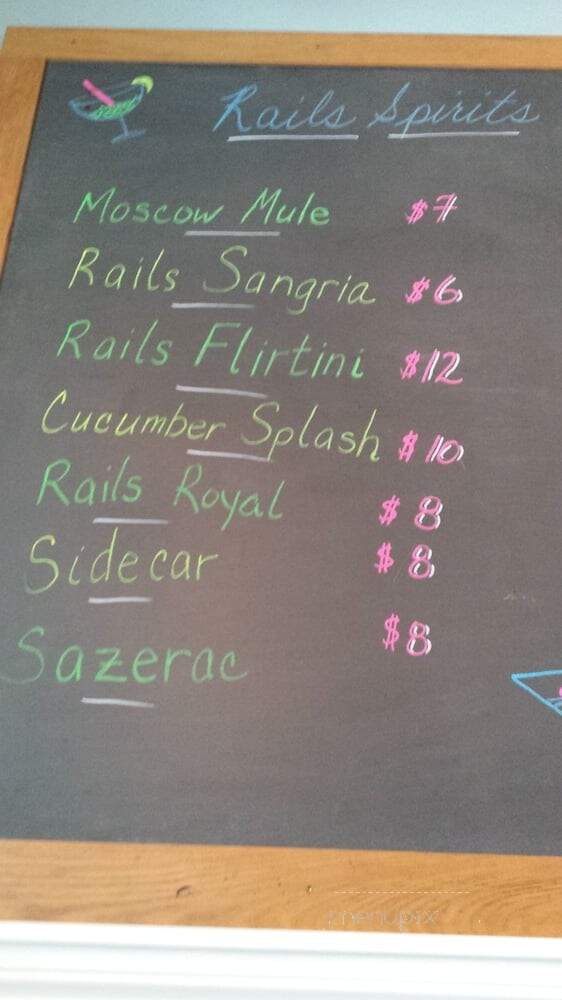 Rails Spirits
Moscow Mule $7
Rails Sangria $6
Rails Flirtini $12
Cucumber Splash $10
Rails Royal $8
Sidecar $8
Sazerac $8
menupix